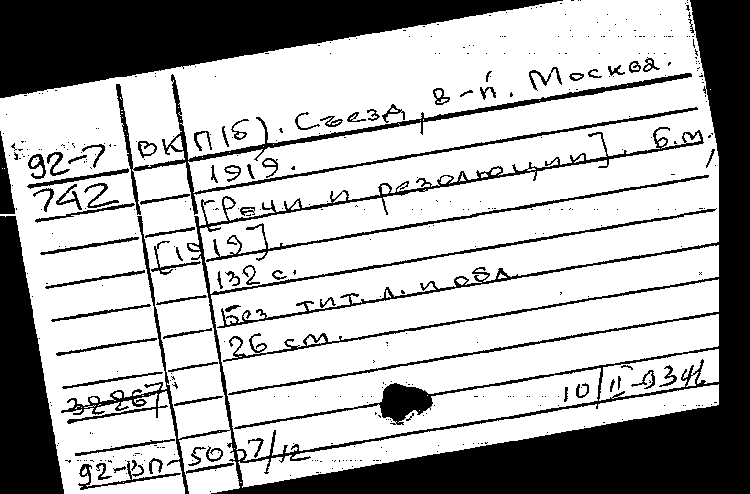 92-7 ВКП(б). Съезд, 8-й. Москва.
742 1919.
[Речи и резолюции]. б.м.,
[1919].
132 с.
Без тит. л. и обл
26 см.
32267
10/II-934г
92-ВП-5037/12